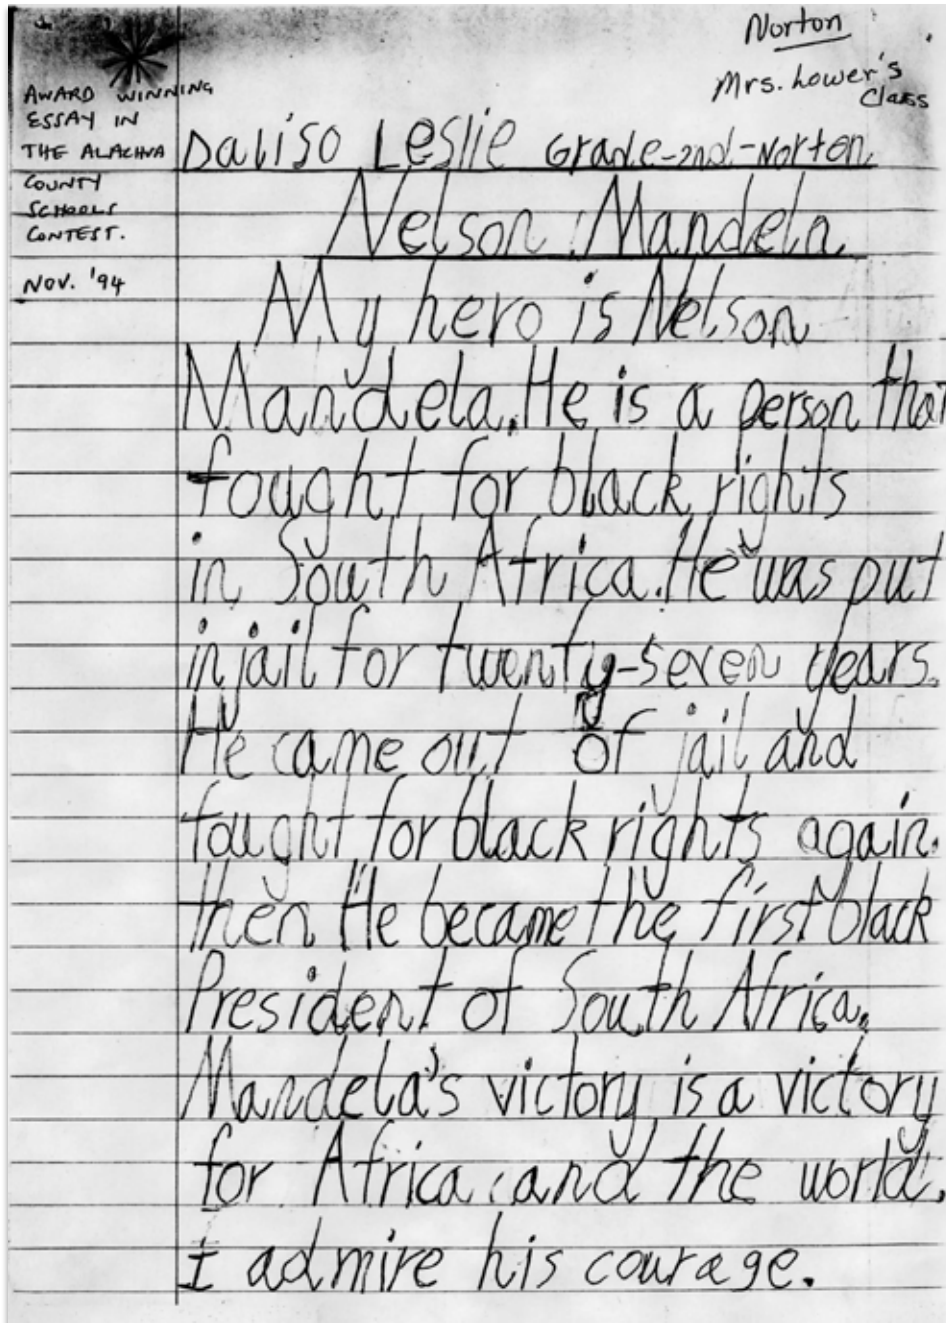 Norton
Mrs. Lower's
Class
AWARD WINNING
ESSAY IN
THE ALACHUA
COUNTY
SCHOOLS
CONTEST.
NOV. '94
Daliso Leslie Grade-2nd-Norton
Nelson Mandela
My hero is Nelson
Mandela. He is a person that
fought for black rights
in South Africa. He was put
in jail for twenty-seven years.
He came out of jail and
fought for black rights again.
then He became the first black
President of South Africa.
Mandela's victory is a victory
for Africa and the world.
I admire his courage.